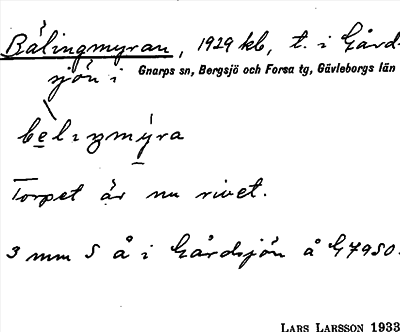 Bålingmyran, 1929 kb, t. i Gård-
sjön i Gnarps sn, Bergsjö och Forsa tg, Gävleborgs län
Torpet är nu rivet.
3 mm S å i Gårdsjön å G7950.
LARS LARSSON 1933